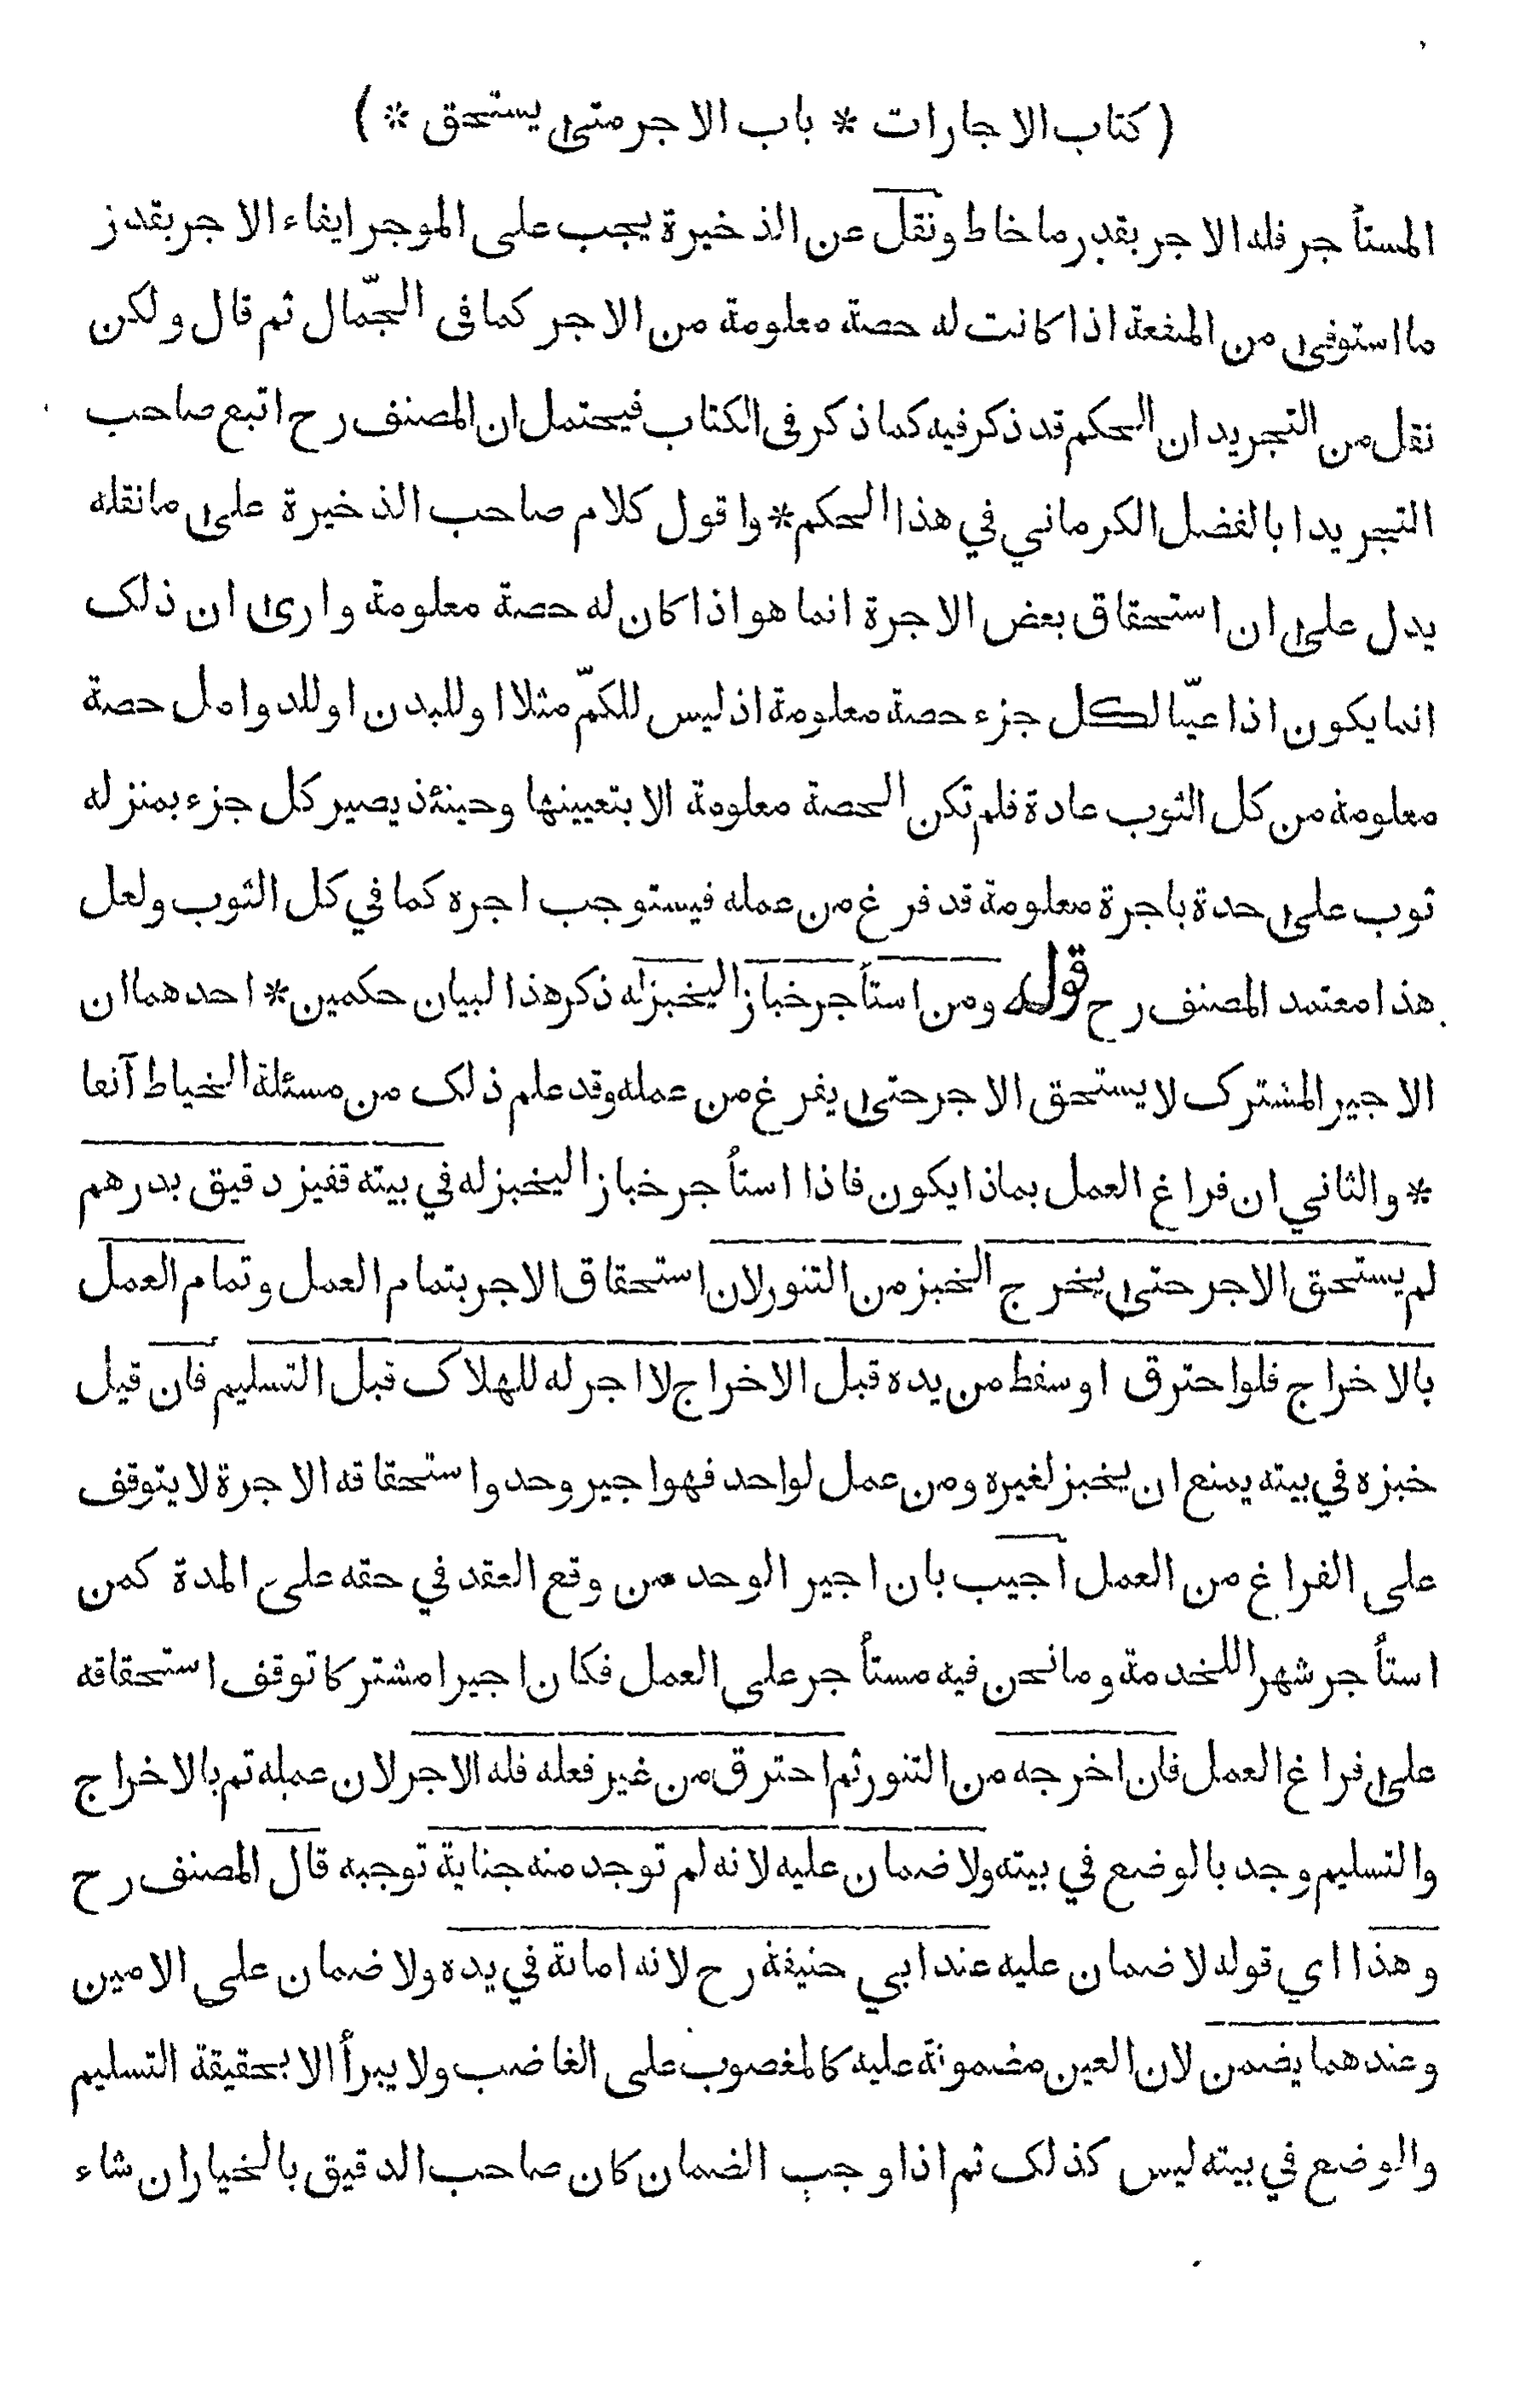 ( كتاب الاجارات * باب الاجر متى يستحق * )
المستأجر فله الاجر بقدر ما خاط ونقل عن الذخيرة يجب على الموجر ايفاء الاجر بقدر
ما استوفى من المنفعة اذا كانت له حصة معلومة من الاجر كما فى الجمّال ثم قال ولكن
نقل من التجريد ان الحكم قد ذكر فيه كما ذكر فى الكتاب فيحتمل ان المصنف رح اتبع صاحب
التجريد ابا الفضل الكرماني في هذا الحكم * واقول كلام صاحب الذخيرة على ما نقله
يدل على ان استحقاق بعض الاجرة انما هو اذا كان له حصة معلومة وارى ان ذلك
انما يكون اذا عيّنا لكل جزء حصة معلومة اذ ليس للكمّ مثلا او للبدن او للدوامل حصة
معلومة من كل الثوب عادة فلم تكن الحصة معلومة الا بتعيينها وحينئذ يصير كل جزء بمنزله
ثوب على حدة باجرة معلومة قد فرغ من عمله فيستوجب اجره كما في كل الثوب ولعل
هذا معتمد المصنف رح قوله ومن استأجر خبازا ليخبز له ذكر هذا لبيان حكمين * احدهما ان
الاجير المشترك لا يستحق الاجر حتى يفرغ من عمله وقد علم ذلك من مسئلة الخياط آنفا
* والثاني ان فراغ العمل بماذا يكون فاذا استأجر خبازا ليخبز له في بيته قفيز دقيق بدرهم
لم يستحق الاجر حتى يخرج الخبز من التنور لان استحقاق الاجر بتمام العمل وتمام العمل
بالاخراج فلو احترق او سقط من يده قبل الاخراج لا اجر له للهلاك قبل التسليم فان قيل
خبزه في بيته يمنع ان يخبز لغيره ومن عمل لواحد فهو اجير وحد واستحقاقه الاجرة لا يتوقف
على الفراغ من العمل أجيب بان اجير الوحد من وقع العقد في حقه على المدة كمن
استأجر شهرا للخدمة وما نحن فيه مستأجر على العمل فكان اجيرا مشتركا توقف استحقاقه
على فراغ العمل فان اخرجه من التنور ثم احترق من غير فعله فله الاجر لان عمله تم بالاخراج
والتسليم وجد بالوضع في بيته ولا ضمان عليه لانه لم توجد منه جناية توجبه قال المصنف رح
وهذا اي قوله لا ضمان عليه عند ابي حنيفة رح لانه امانة في يده ولا ضمان على الامين
وعندهما يضمن لان العين مضمونة عليه كالمغصوب على الغاصب ولا يبرأ الا بحقيقة التسليم
والوضع في بيته ليس كذلك ثم اذا وجب الضمان كان صاحب الدقيق بالخيار ان شاء